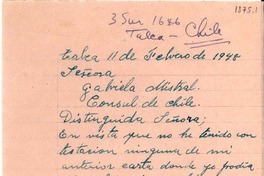 1375.1
3 Sur 1686
Talca - Chile
Talca 11 de Febrero de 1948
Señora
Gabriela Mistral.
Consul de Chile.
Distinguida Señora;
En vista que no he tenido con
testacion ninguna de mi
anterior carta donde yo podia